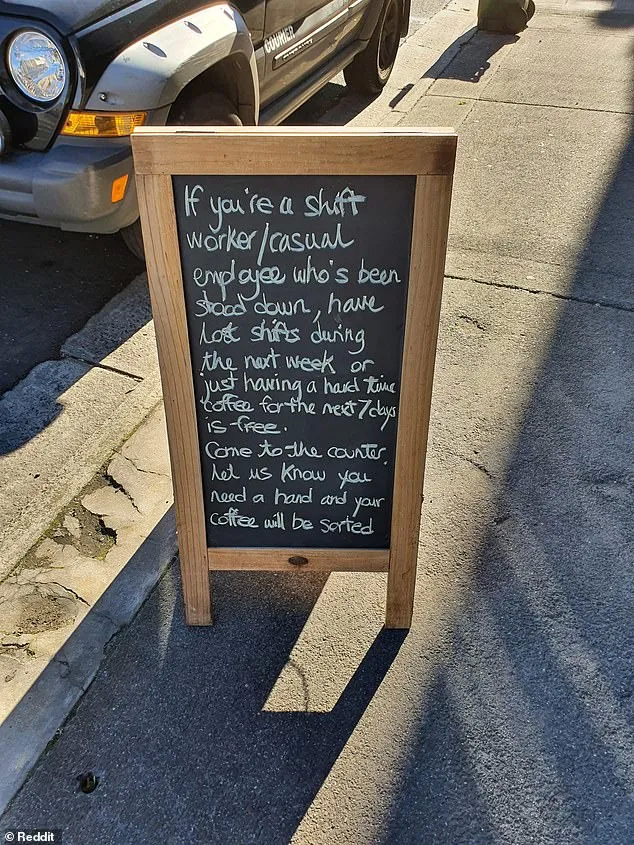 COURIER
If you're a shift
worker/casual
employee who's been
stood down, have
lost shifts during
the next week or
just having a hard time
coffee for the next 7 days
is free.
Come to the counter,
let us know you
need a hand and your
coffee will be sorted
© Reddit